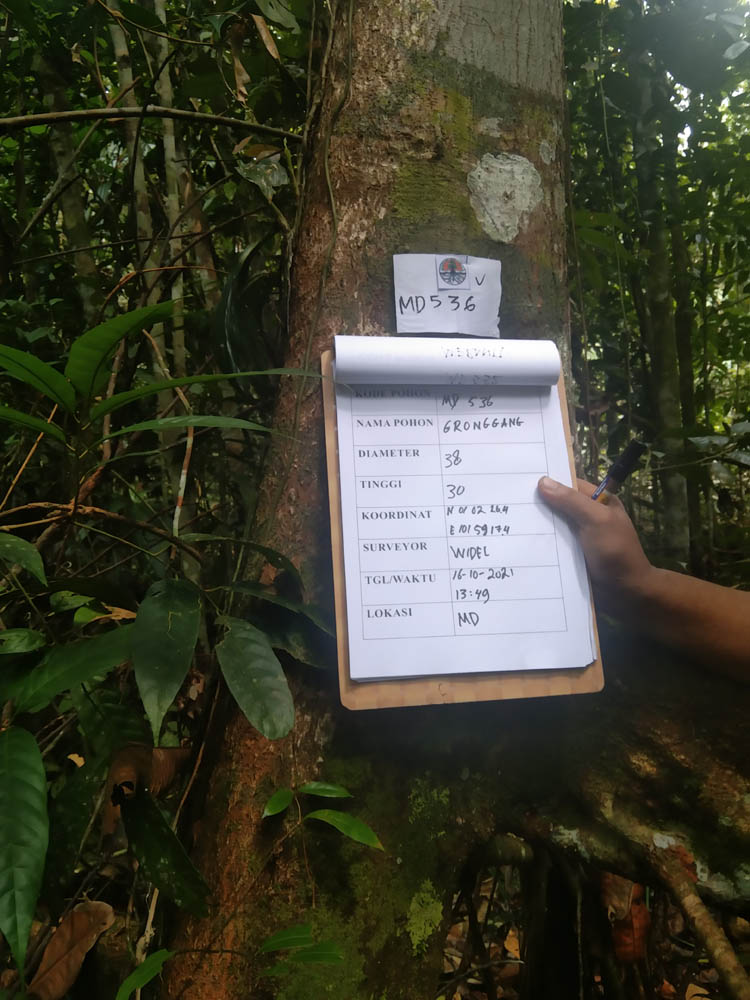 MD 536
KODE POHON MD 536
NAMA POHON GRONGGANG
DIAMETER 38
TINGGI 30
KOORDINAT N 01 02 26.4
E 101 59 17.4
SURVEYOR WIDEL
TGL/WAKTU 16-10-2021
13:49
LOKASI MD